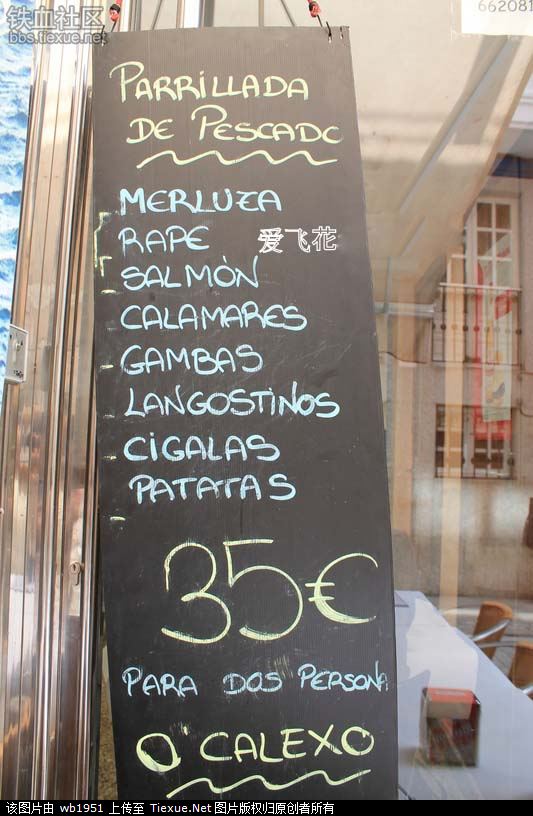 铁血社区
bbs.tiexue.net
662081
PARRILLADA
DE PESCADO
MERLUZA
RAPE
爱飞花
SALMÓN
CALAMARES
GAMBAS
LANGOSTINOS
CIGALAS
PATATAS
35€
PARA DOS PERSONA
O'CALEXO
该图片由 wb1951 上传至 Tiexue.Net 图片版权归原创者所有